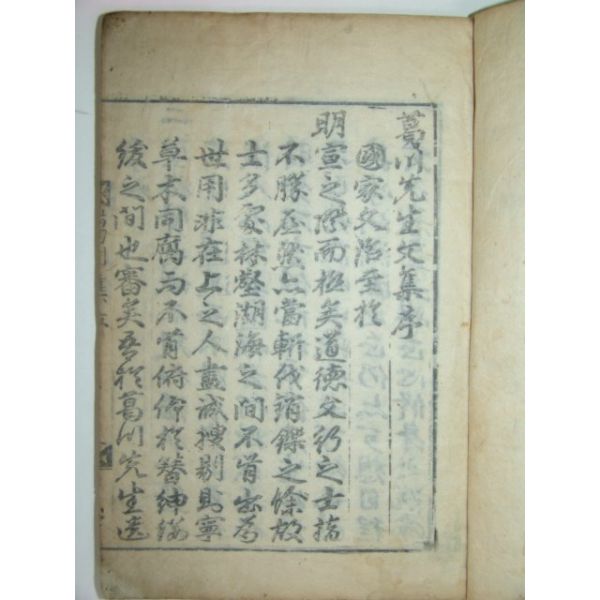 葛川先生文集序
國家文治至於
明宣之際而極矣道德文行之士指
不勝屈然亦當斬伐銷鑠之餘故
士多家林壑湖海之間不肯出爲
世用非在上之人盡誠搜剔則寧
草木同腐而不肯俯仰於簪紳綾
綬之間也審矣吾於葛川先生遺